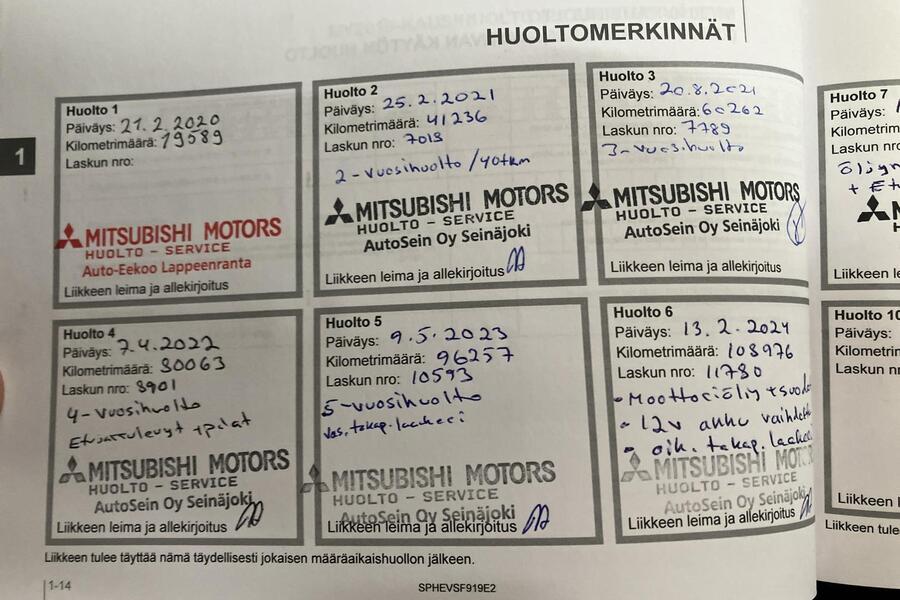 HUOLTOMERKINNÄT
1
Huolto 1
Päiväys: 21.2.2020
Kilometrimäärä: 19589
Laskun nro:
MITSUBISHI MOTORS
HUOLTO - SERVICE
Auto-Eekoo Lappeenranta
Liikkeen leima ja allekirjoitus
Huolto 2
Päiväys: 25.2.2021
Kilometrimäärä: 41236
Laskun nro: 7013
2-vuosihuolto /40tkm
MITSUBISHI MOTORS
HUOLTO - SERVICE
AutoSein Oy Seinäjoki
Liikkeen leima ja allekirjoitus
Huolto 3
Päiväys: 20.8.2021
Kilometrimäärä: 60262
Laskun nro: 7789
3-vuosihuolto
MITSUBISHI MOTORS
HUOLTO - SERVICE
AutoSein Oy Seinäjoki
Liikkeen leima ja allekirjoitus
Huolto 7
Päiväys:
Kilometri
Laskun nro:
+
Huolto 4
Päiväys: 7.4.2022
Kilometrimäärä: 80063
Laskun nro: 8901
4-vuosihuolto
Etujarrulevyt + palat
MITSUBISHI MOTORS
HUOLTO - SERVICE
AutoSein Oy Seinäjoki
Liikkeen leima ja allekirjoitus
Huolto 5
Päiväys: 9.5.2023
Kilometrimäärä: 96257
Laskun nro: 10593
5-vuosihuolto
vas. takap. laakeri
MITSUBISHI MOTORS
HUOLTO - SERVICE
AutoSein Oy Seinäjoki
Liikkeen leima ja allekirjoitus
Huolto 6
Päiväys: 13.2.2024
Kilometrimäärä: 108976
Laskun nro: 11780
- Moottoriöljy + suoda
- 12v akku vaihdett
- oik. takap. laakeri
MITSUBISHI MOT
HUOLTO - SERVICE
AutoSein Oy Seinäjoki
Liikkeen leima ja allekirjoitus
Huolto 10
Päiväys:
Kilometrim
Laskun nr
Liikkeen l
Liikkeen tulee täyttää nämä täydellisesti jokaisen määräaikaishuollon jälkeen.
Liikkeen tule
1-14
SPHEVSF919E2